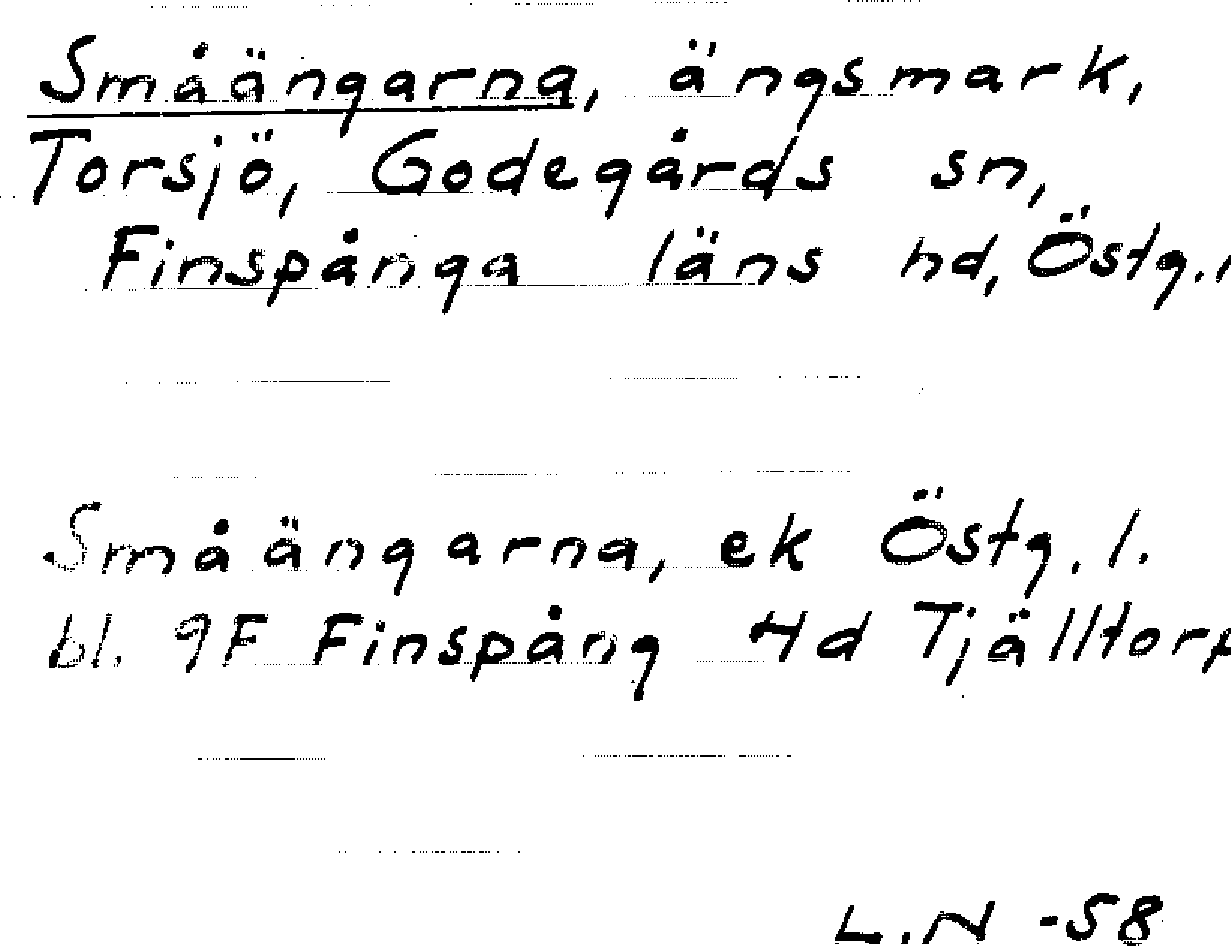 Småängarna, ängsmark,
Torsjö, Godegårds sn,
Finspånga läns hd, Östg. l
Småängarna, ek Östg. l.
bl. 9F Finspång 4d Tjälltorp
L.N -58